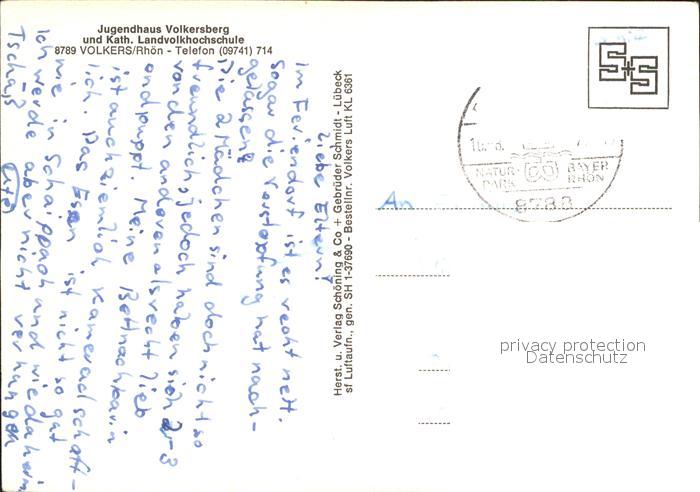 Jugendhaus Volkersberg
und Kath. Landvolkhochschule
8789 VOLKERS/Rhön - Telefon (09741) 714
Liebe Eltern!
Im Feriendorf ist es recht nett.
Sogar die Verstopfung hat nach-
gelassen.
Die 2 Mädchen sind doch nicht so
freundlich, jedoch haben sich 2-3
von den anderen als recht lieb
entpuppt. Meine Bettnachbarin
ist auch ziemlich kameradschaft-
lich. Das Essen ist nicht so gut
wie in Schaippach und wie daheim
Ich werde aber nicht verhungen
Tschüß
Ute
Herst. u. Verlag Schöning & Co + Gebrüder Schmidt - Lübeck
sf Luftaufn., gen. SH 1-37690 - Bestellnr. Volkers Luft KL 6361
S+S
NATUR-
PARK
BAYER
RHÖN
8788
An
privacy protection
Datenschutz